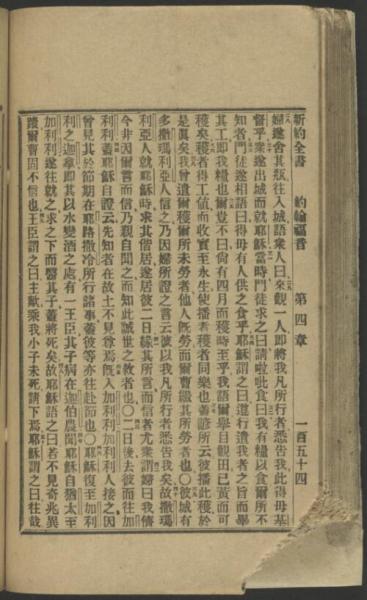 新約全書 約翰福音 第四章 一百五十四
婦遂舍其瓶往入城語衆人曰來觀一人即將我凡所行者悉告我此得毋基
督乎衆遂出城而就耶穌當時門徒求之曰請啦吡食曰我有糧以食爾所不
知者門徒遂相語曰得毋有人供之食乎耶穌謂之曰遵行遣我者之旨而畢
其工即我糧也爾豈不曰尙有四月而穫時至乎我語爾舉目觀田已黃而可
穫矣穫者得工値而收實至永生使播者穫者同樂也善諺所云彼播此穫於
是眞矣我曾遣爾穫爾所未勞者他人旣勞而爾曹繼其所勞者也〇彼城有
多撒瑪利亞人信之乃因婦所證之言云彼以我凡所行者悉告我矣故撒瑪
利亞人就耶穌時求其偕居遂居彼二日緣其所言而信者尤衆謂婦曰我儕
今非因爾言而信乃親自聞之而知此誠世之救者也〇二日後去彼而往加
利利蓋耶穌自證云先知者在故土不見尊焉旣入加利利加利利人接之因
曾見其於節期在耶路撒冷所行諸事蓋彼等亦往赴節也〇耶穌復至加利
利之迦拿即其以水變酒之處有一王臣其子病在迦伯農聞耶穌自猶太至
加利利遂往就之求之下而醫其子蓋將死矣故耶穌語之曰若不見奇兆異
蹟爾曹固不信也王臣謂之曰主歟乘我小子未死請下焉耶穌謂之曰往哉